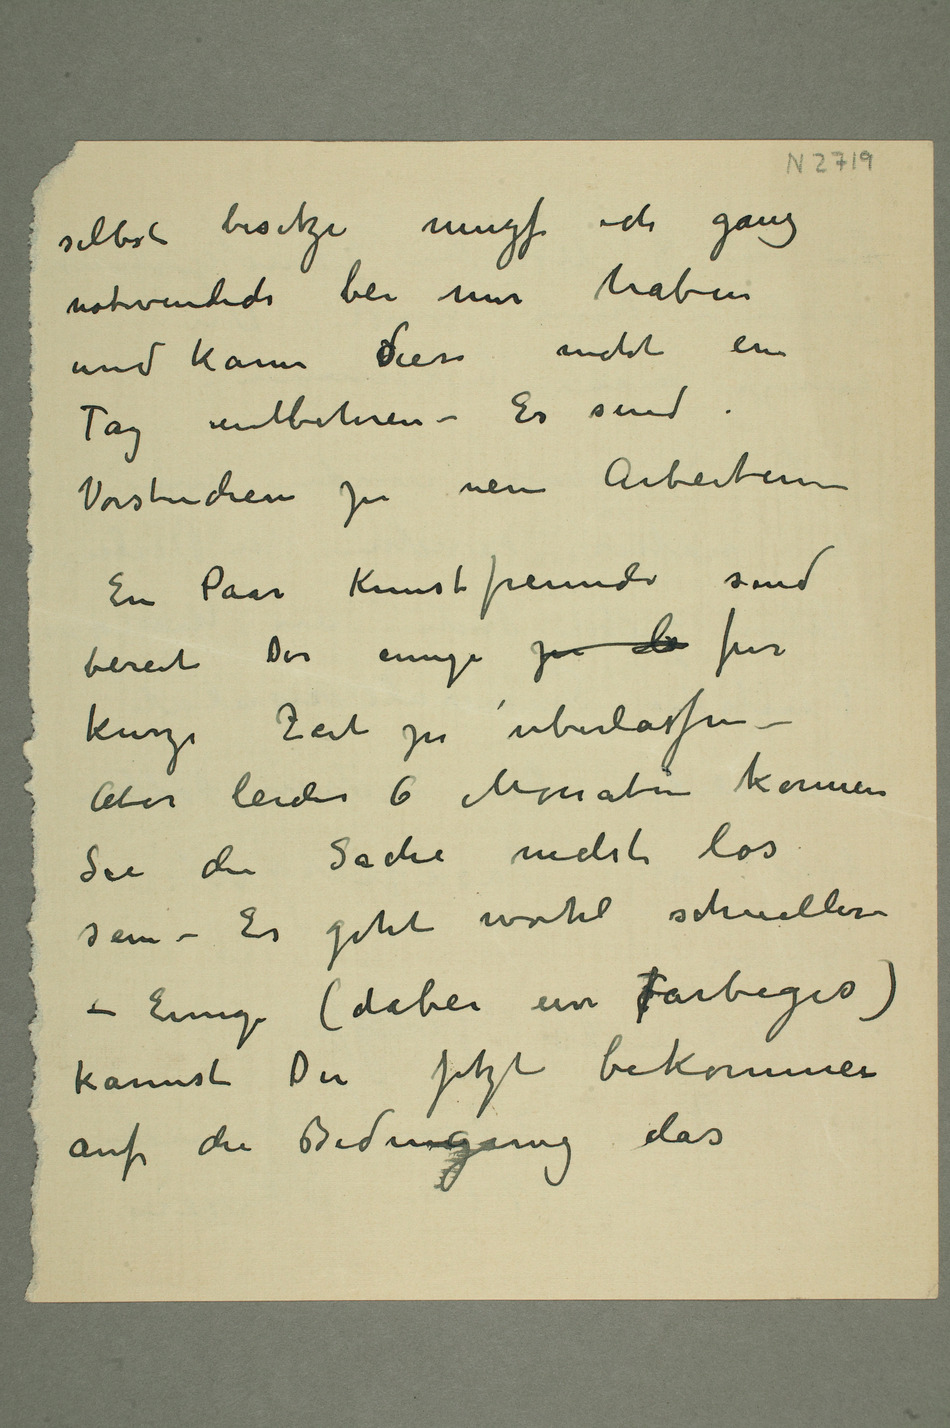 N 2719
selbst besitze muss ich ganz
notwendich bei mir haben
und kann diese nicht ein
Tag entbehren – Es sind
Vorstudien zu neue Arbeiten –
Ein Paar Kunstfreunde sind
bereit Dir einige zu de für
kurze Zeit zu überlassen –
Aber leider 6 Monaten können
Sie die Sache nicht los
sein – Es geht wohl schneller
– Einige (dabei ein farbiges)
kannst Du jetzt bekommen
auf die Bedingung das